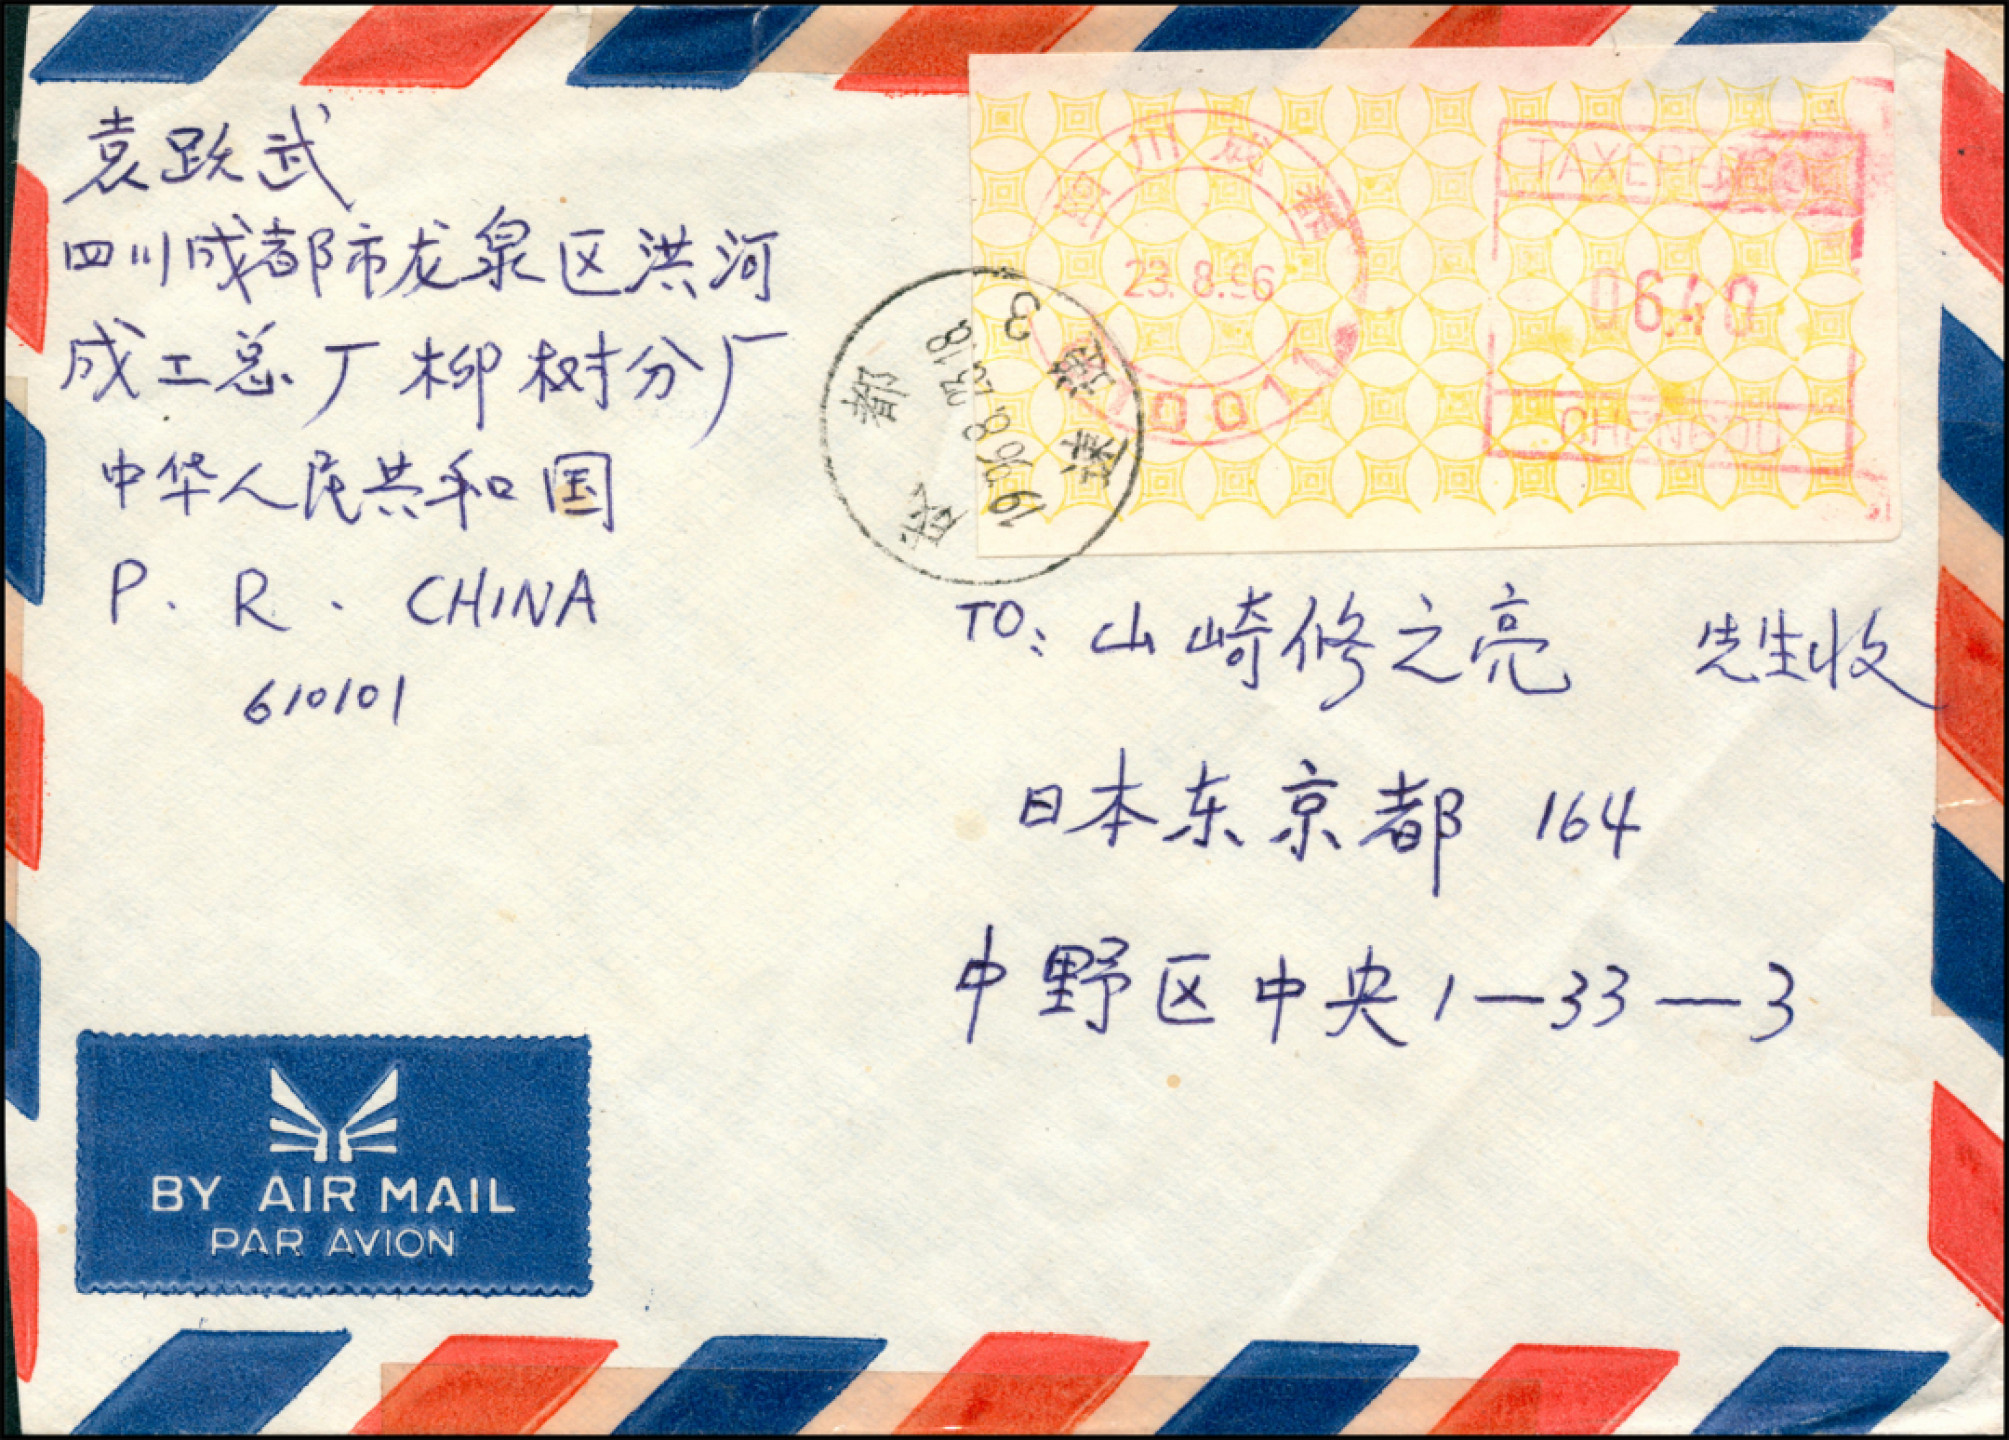 袁跃武
四川成都市龙泉区洪河
成工总厂柳树分厂
中华人民共和国
P. R. CHINA
610101
四川成都
23.8.96
610011
TAXE PERCUE
06.40
CHENGDU
成都
1996.8.23.18
3
TO: 山崎修之亮 先生收
日本东京都 164
中野区中央1—33—3
BY AIR MAIL
PAR AVION